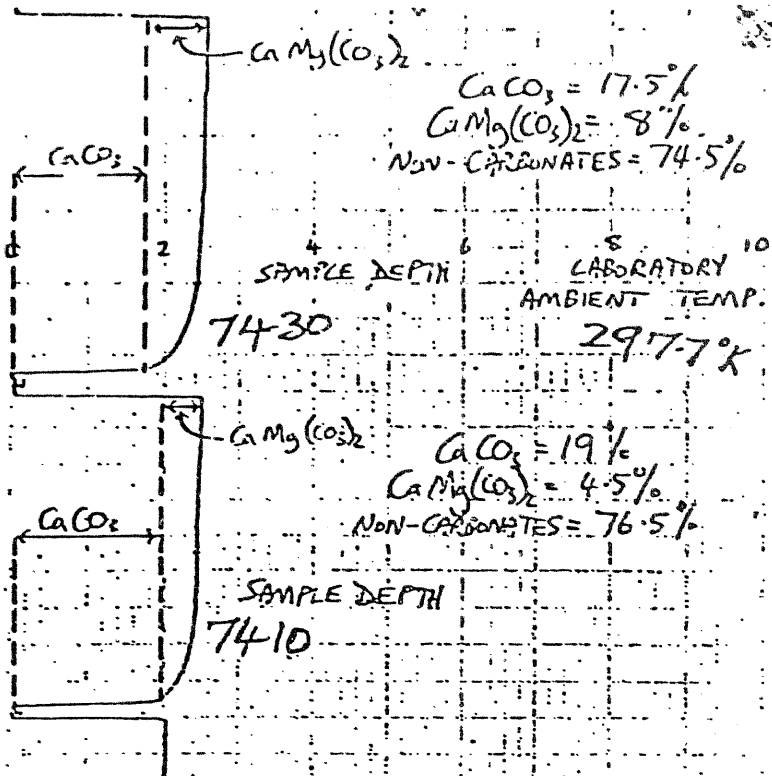 CaMg(CO₃)₂
CaCO₃ = 17.5%
CaMg(CO₃)₂ = 8%
NON-CARBONATES = 74.5%
CaCO₃
0 2 4 6 8 10
SAMPLE DEPTH
7430
LABORATORY
AMBIENT TEMP.
297.7°K
CaMg(CO₃)₂
CaCO₃ = 19%
CaMg(CO₃)₂ = 4.5%
NON-CARBONATES = 76.5%
CaCO₃
SAMPLE DEPTH
7410